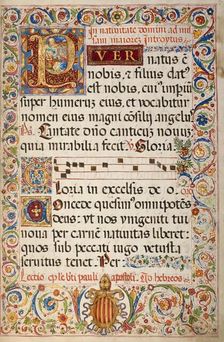 In nativitate domini ad mi
sam maiorem Introytus
P VER
natus ē
nobis, z filius dat9
est nobis, cui9 imp̄iū
super humerū eius, et vocabitur
nomen eius magni cōsilij angelus
Ps. Cantate dn̄o canticū nouū
quia mirabilia fecit. V. Gloria
Gloria in excelsis de o. oro
Concede quesim9 omnipotēs
deus: ut nos unigeniti tui
noua per carnē natiuitas liberet:
quos sub peccati iugo vetusta
seruitus tenet. Per
Lectio ep̄le bti pauli apostoli. Ad hebreos